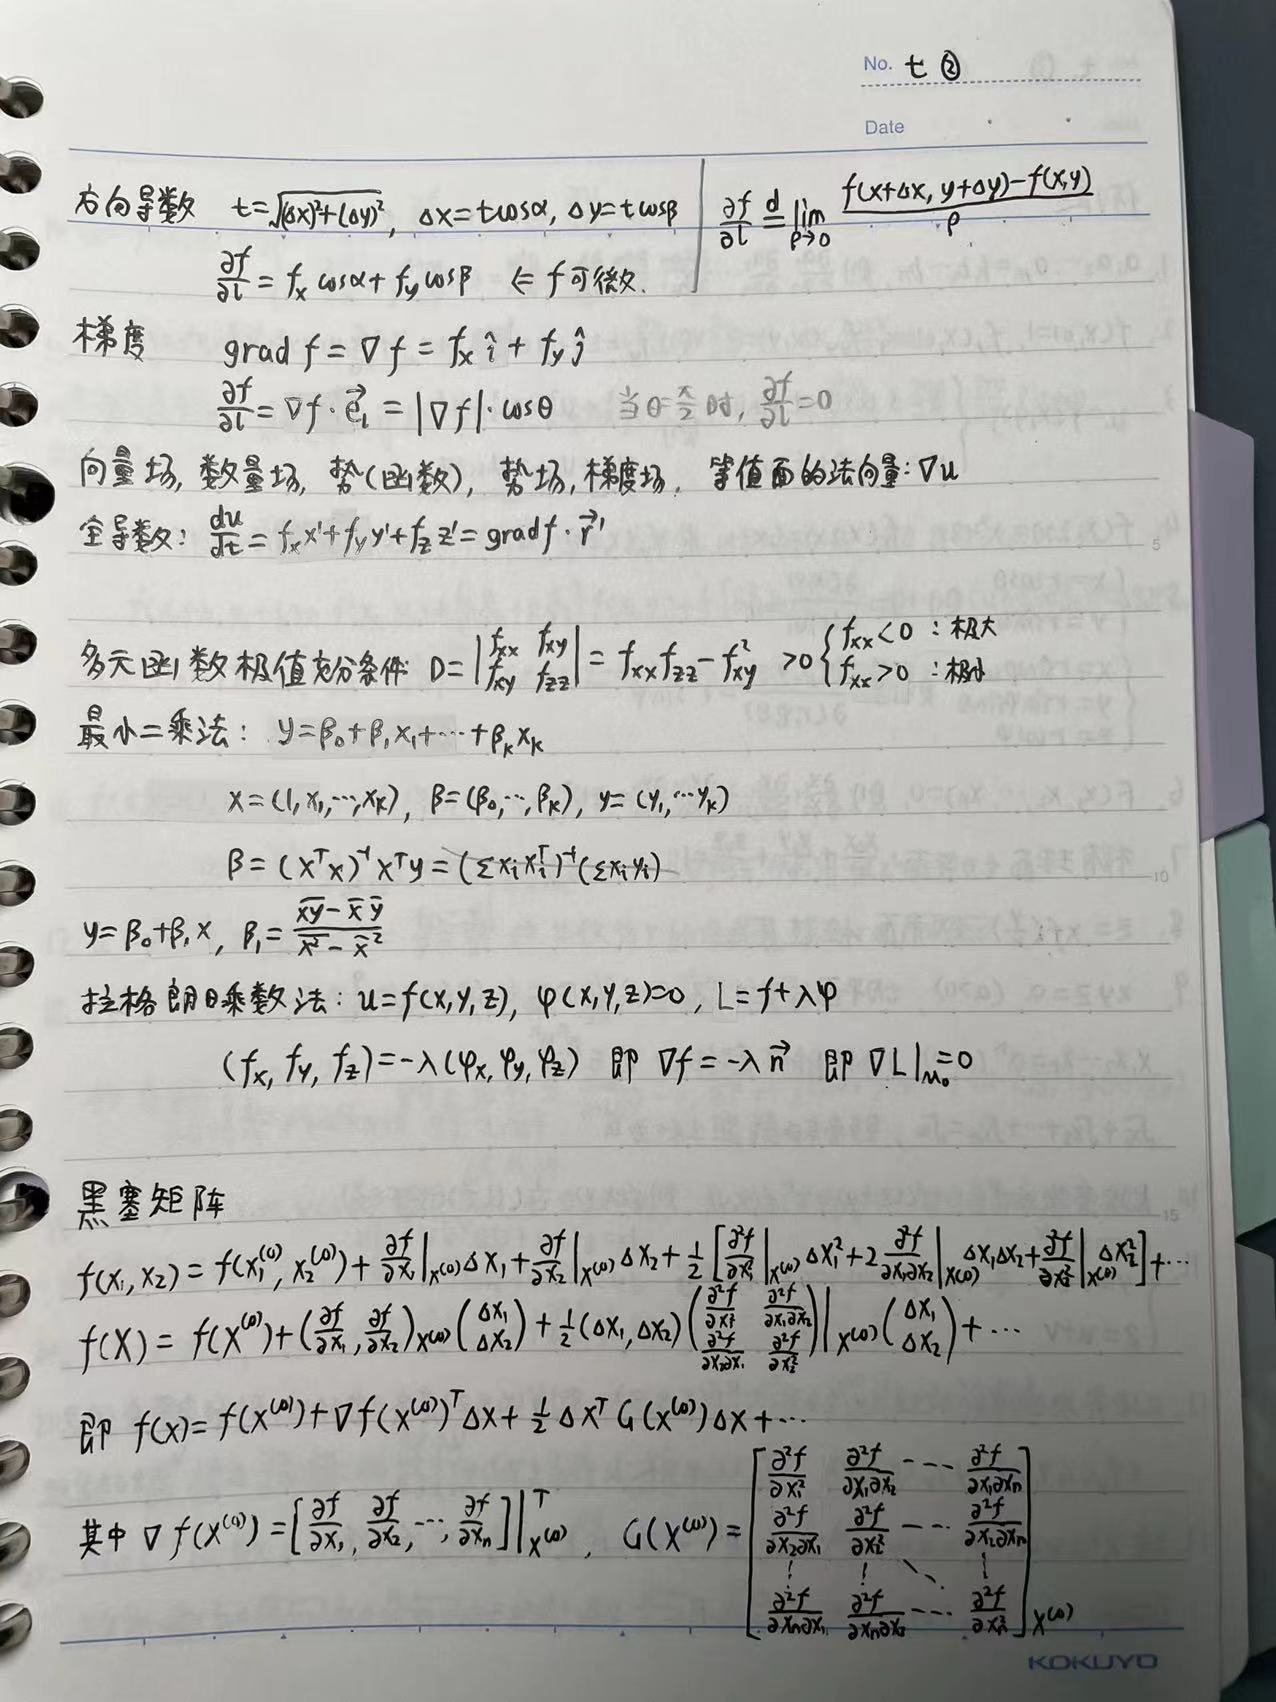 No. 七 ②
Date
方向导数 t=√((Δx)²+(Δy)²), Δx=tcosα, Δy=tcosβ
∂f/∂l = f_x cosα + f_y cosβ ⇐ f可微.
∂f/∂l ≝ lim_{ρ→0} (f(x+Δx, y+Δy)-f(x,y))/ρ
梯度 grad f = ∇f = f_x î + f_y ĵ
∂f/∂l = ∇f·e⃗_l = |∇f|·cosθ 当θ=π/2时, ∂f/∂l=0
向量场, 数量场, 势(函数), 势场, 梯度场, 等值面的法向量: ∇u
全导数: du/dt = f_x x'+f_y y'+f_z z' = grad f·r⃗'
5
多元函数极值充分条件 D=|f_xx f_xy; f_xy f_zz| = f_xx f_zz - f_xy² >0 { f_xx<0 : 极大
f_xx>0 : 极小
最小二乘法: y=β₀+β₁x₁+…+β_k x_k
x=(1,x₁,…,x_k), β=(β₀,…,β_k), y=(y₁,…y_k)
β=(x^T x)^{-1} x^T y = (Σx_i x_i^T)^{-1}(Σx_i y_i)
10
y=β₀+β₁x, β₁= (x̄ȳ - x̄ ȳ)/(x̄² - x̄²)
拉格朗日乘数法: u=f(x,y,z), φ(x,y,z)=0, L=f+λφ
(f_x, f_y, f_z)=-λ(φ_x, φ_y, φ_z) 即 ∇f=-λn⃗ 即 ∇L|_{M₀}=0
黑塞矩阵
15
f(x₁,x₂) = f(x₁^(0), x₂^(0)) + ∂f/∂x₁|_{X^(0)} Δx₁ + ∂f/∂x₂|_{X^(0)} Δx₂ + 1/2[∂²f/∂x₁²|_{X^(0)} Δx₁² + 2 ∂²f/∂x₁∂x₂|_{X^(0)} Δx₁Δx₂ + ∂²f/∂x₂²|_{X^(0)} Δx₂²] + …
f(X) = f(X^(0)) + (∂f/∂x₁, ∂f/∂x₂)_{X^(0)} (Δx₁; Δx₂) + 1/2(Δx₁, Δx₂) (∂²f/∂x₁² ∂²f/∂x₁∂x₂; ∂²f/∂x₂∂x₁ ∂²f/∂x₂²)|_{X^(0)} (Δx₁; Δx₂) + …
即 f(x) = f(X^(0)) + ∇f(X^(0))^T Δx + 1/2 Δx^T G(X^(0)) Δx + …
其中 ∇f(X^(0)) = [∂f/∂x₁, ∂f/∂x₂, …, ∂f/∂x_n]|^T_{X^(0)}, G(X^(0)) = [∂²f/∂x₁² ∂²f/∂x₁∂x₂ --- ∂²f/∂x₁∂x_n
∂²f/∂x₂∂x₁ ∂²f/∂x₂² --- ∂²f/∂x₂∂x_n
⋮ ⋮ ⋱ ⋮
∂²f/∂x_n∂x₁ ∂²f/∂x_n∂x₂ --- ∂²f/∂x_n²]_{X^(0)}
KOKUYO